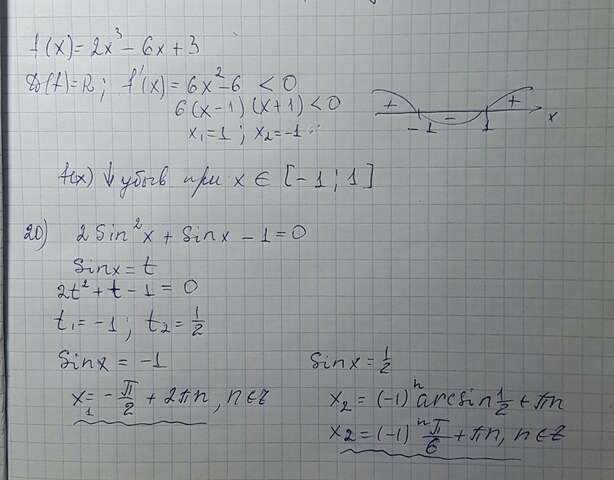 f(x) = 2x³ - 6x + 3
D(f) = R; f'(x) = 6x² - 6 < 0
6(x-1)(x+1) < 0
x₁ = 1; x₂ = -1
+ - + 
-1 1 x
f(x) ↓ убыв при x ∈ [-1; 1]
20) 2 Sin²x + Sinx - 1 = 0
Sinx = t
2t² + t - 1 = 0
t₁ = -1; t₂ = 1/2
Sinx = -1
x₁ = -π/2 + 2πn, n∈Z
Sinx = 1/2
x₂ = (-1)ⁿ arcsin 1/2 + πn
x₂ = (-1)ⁿ π/6 + πn, n∈Z